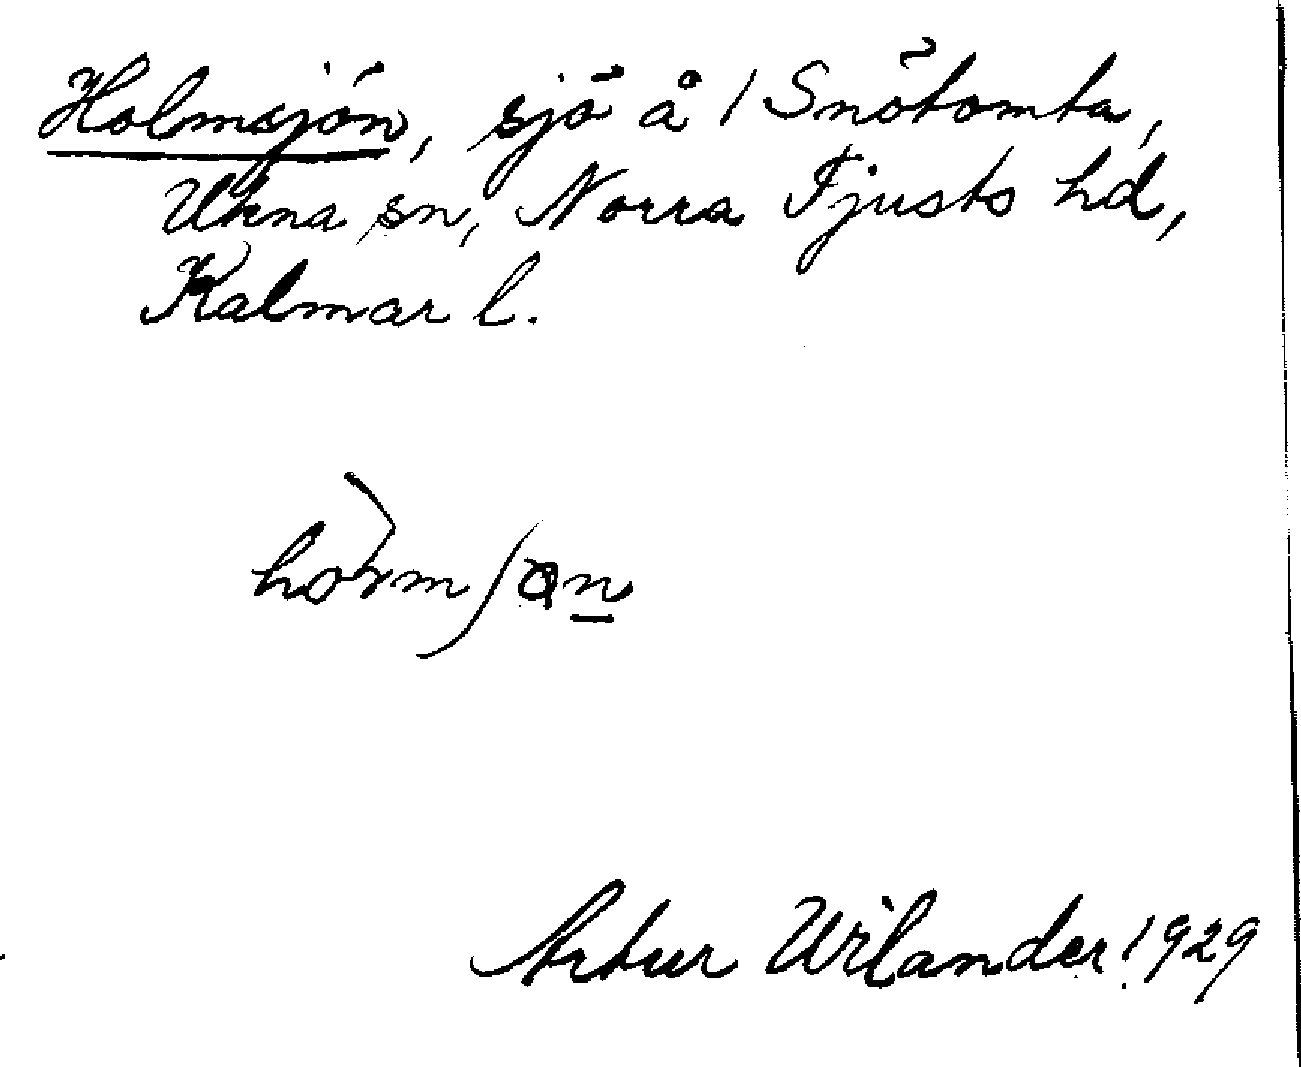 Holmsjön, sjö å 1 Snötomta,
Ukna sn, Norra Tjusts hd,
Kalmar l.
Artur Wilander 1929